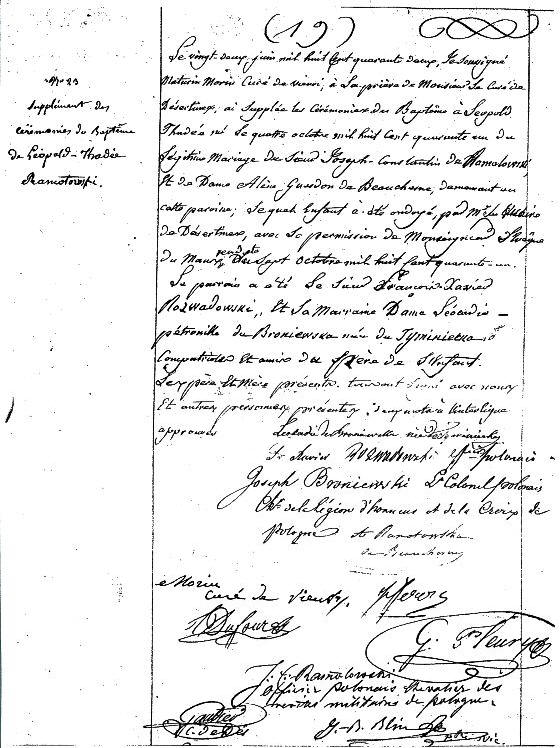 (19)
N° 23
Supplément des
cérémonies du Baptême
de Léopold-Thadée
Ramotowski.
Le vingt deux juin mil huit Cent quarante deux, Je soussigné
Maturin Morin Curé de vieuvi, à La prière de Monsieur Le Curé de
Désertines, ai Supplée les Cérémonies du Baptême à Léopold
Thadée né Le quatre octobre mil huit Cent quarante un du
Légitime Mariage du Sieur Joseph-Constantin de Ramolowski
Et de Dame Alère Guesdon de Beauchesne, demeurant en
cette paroisse; Lequel Enfant a été ondoyé, par Mr Le Vicaire
de Désertines, avec La permission de Monseigneur L'Evêque
du Mans, en date du Sept octobre mil huit Cent quarante-un.
Le parrain a été Le Sieur François-Xavier
Rozwadowski, Et Sa Marraine Dame Léocadie-
pétronille de Broniewska née de Tyminiecka
Compatriotes Et amis du père de L'Enfant.
Les père Et Mère présents. Lesquels ont Signé avec nous
Et autres personnes présentes;
approuvé
Léocadie de Broniewska née de Tyminiecka
Fr Xavier Rozwadowski off. polonais
Joseph Broniewski Lt Colonel polonais
Chr de la Légion d'honneur et de la Croix de
Pologne
A Ramotowska
de Beauchesne
Morin
curé de vieuvy,
Dufour
G. Fleury
J. C. Ramolowski
officier polonais chevalier des
mérites militaires de pologne
Gautier
V. C. de Dés
J.-B. Blin